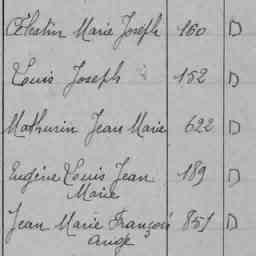 Célestin Marie Joseph 160 D
Louis Joseph 152 D
Mathurin Jean Marie 622 D
Eugène Louis Jean 189 D
Marie
Jean Marie François 851 D
Ange